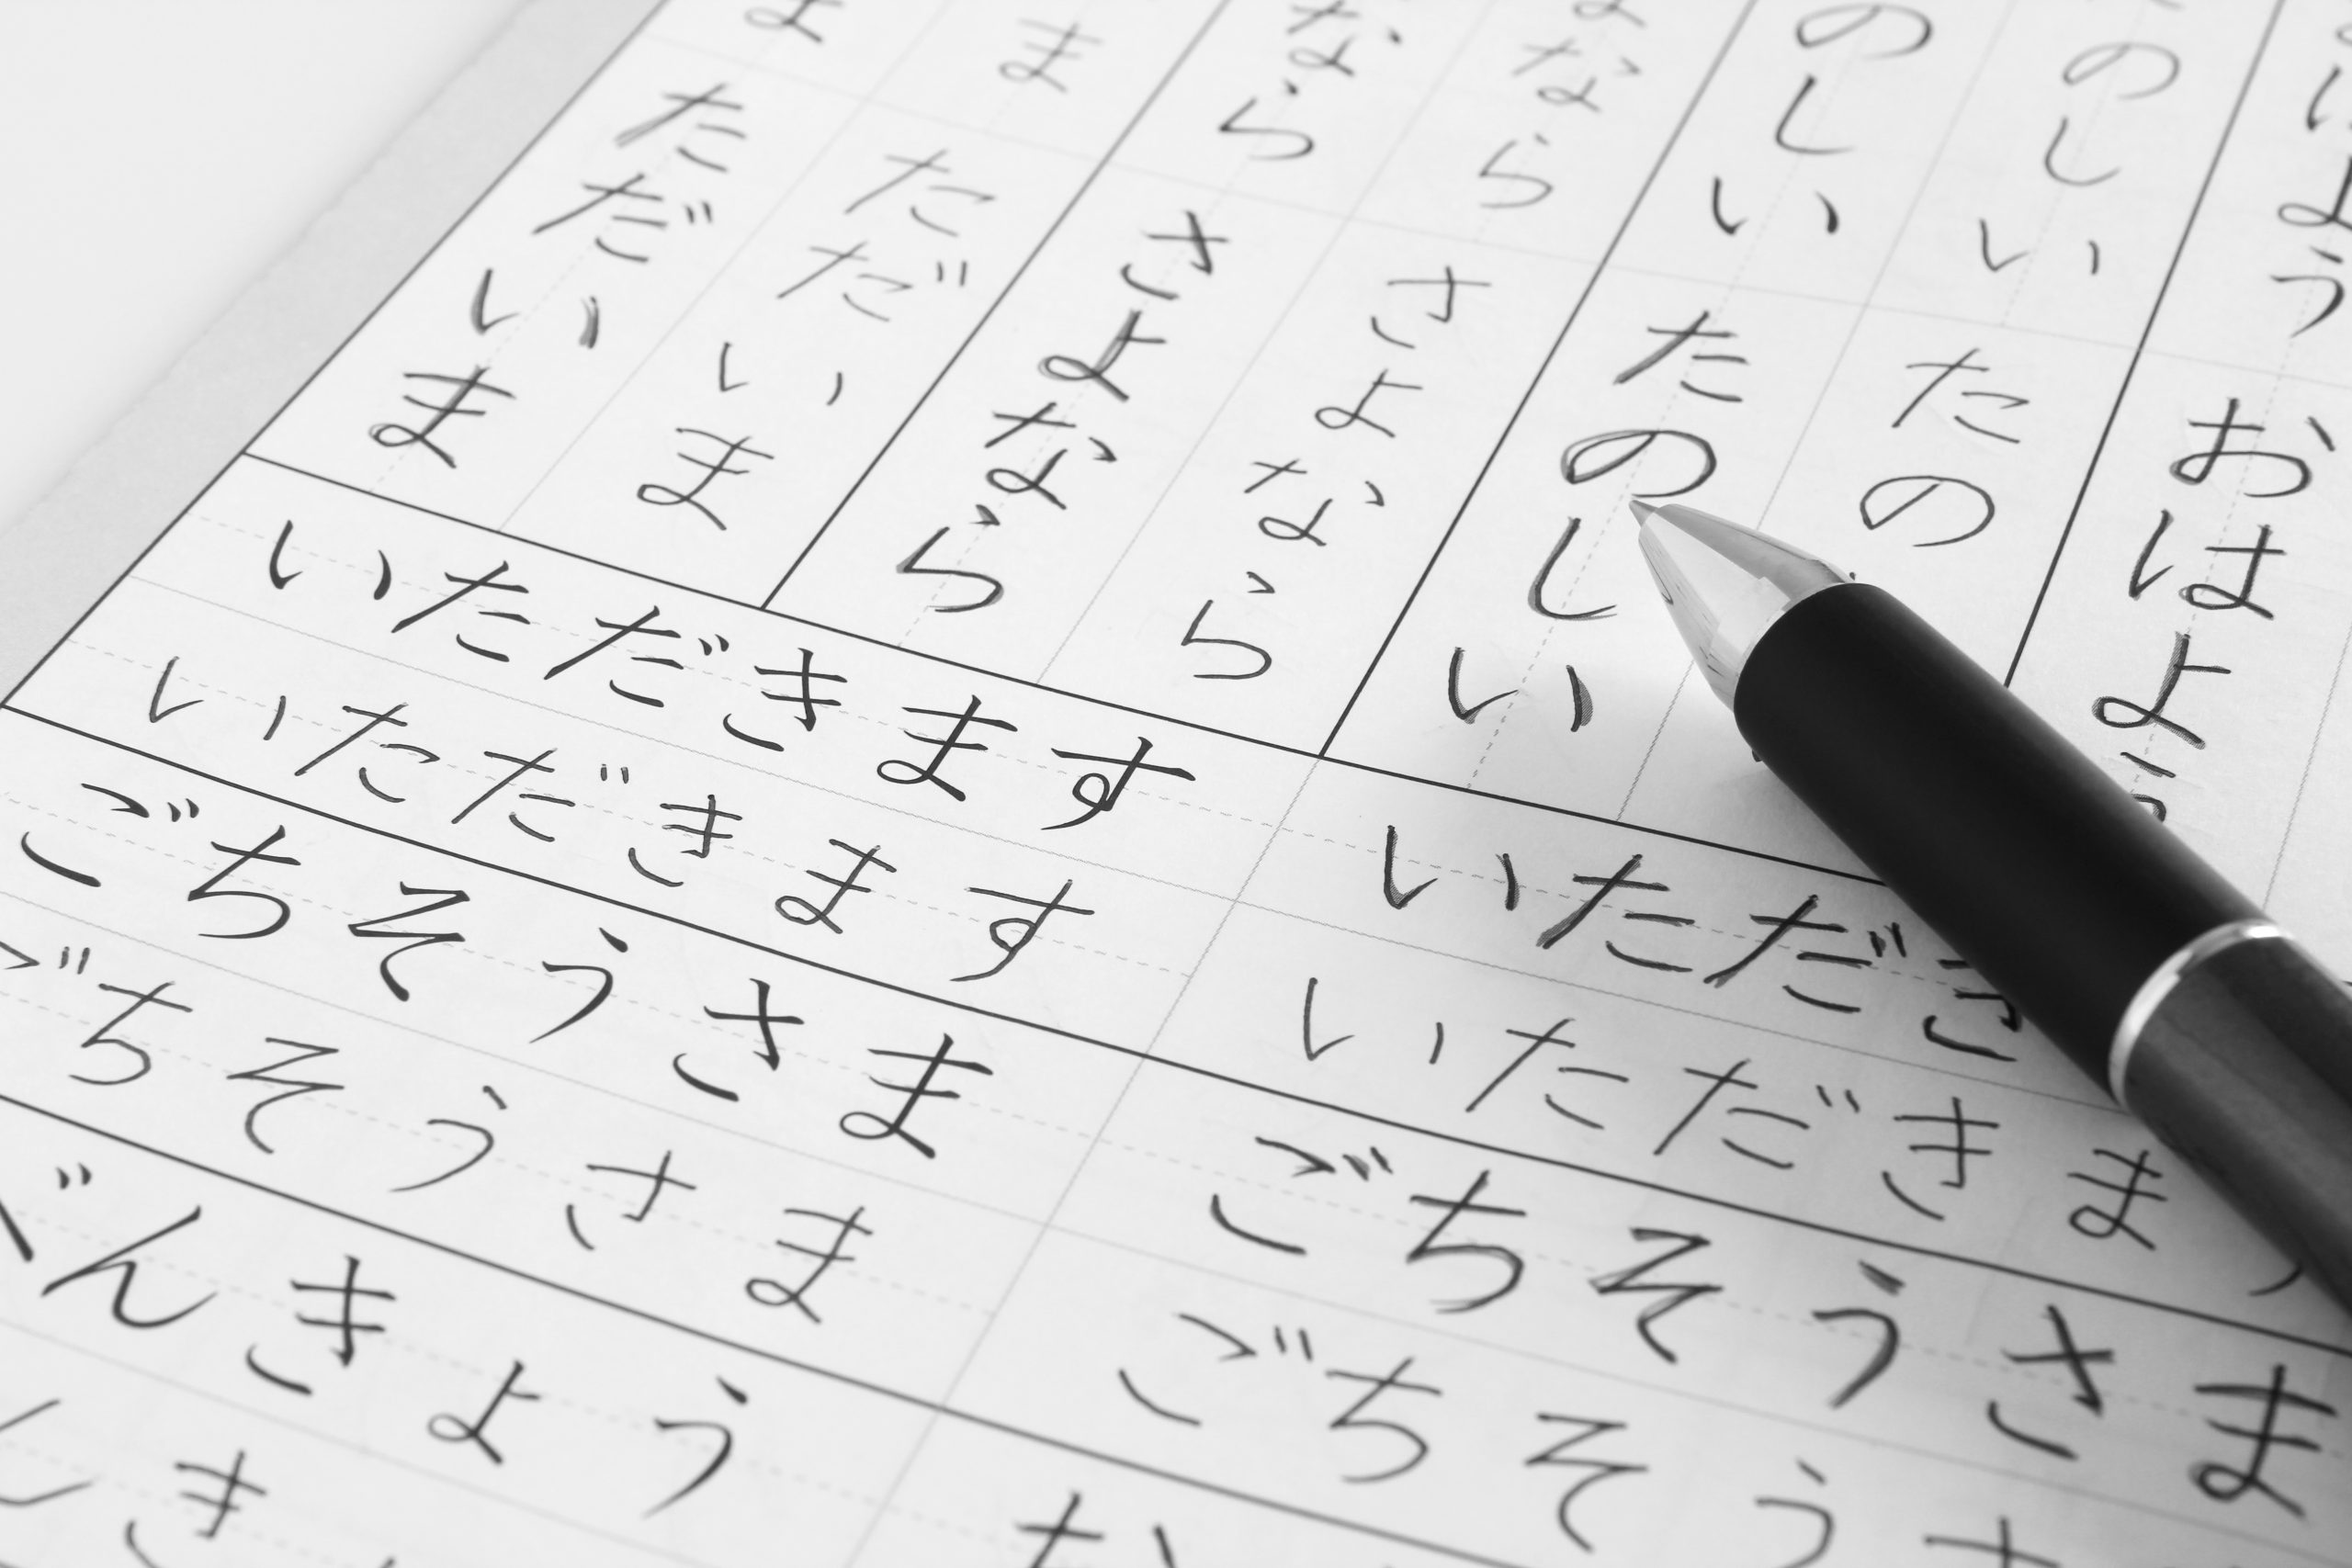 おはよう
はよう
のしい
たの
のしい
たのしい
なら
さよなら
なら
さよなら
ま
ただいま
ま
ただいま
いただきます
いただき
いただきます
いただきま
ごちそうさま
ごちそうさま
ちそうさま
ごちそう
べんきょう
き